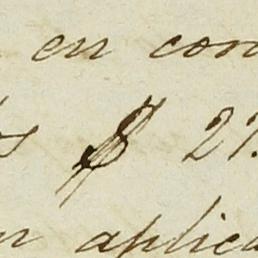 en con
s $ 27.
n aplica